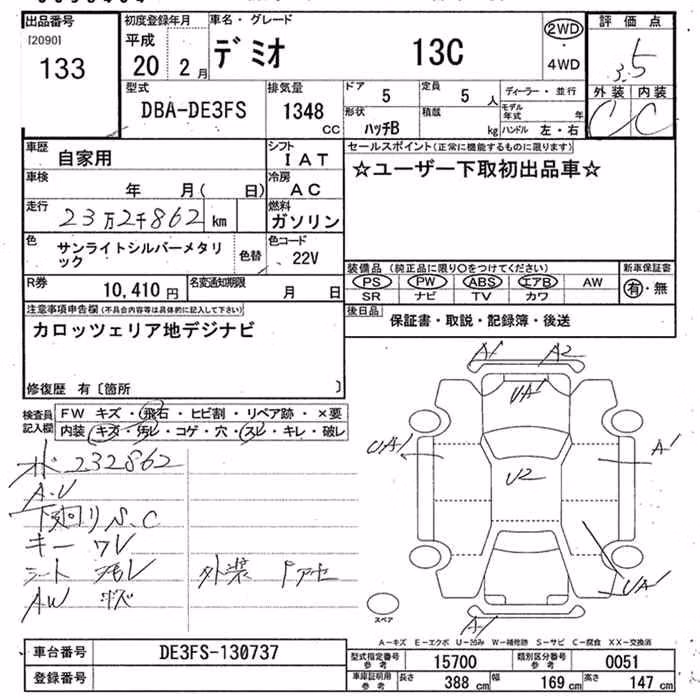 出品番号
[2090]
133
初度登録年月
平成
20年 2月
車名・グレード
デミオ 13C
2WD
・
4WD
評価点
3.5
外装 内装
C C
型式
DBA-DE3FS
排気量
1348 cc
ドア 5
定員 5人
形状 ハッチB
積載 kg
ディーラー・並行
モデル年式 年
ハンドル 左・右
車歴
自家用
シフト
IAT
車検
年 月( 日)
冷房
AC
走行
23万2千862 km
燃料
ガソリン
色
サンライトシルバーメタリック
色替
色コード
22V
R券
10,410円
名変通知期限
月 日
セールスポイント(正常に機能するものに限ります)
☆ユーザー下取初出品車☆
装備品(純正品に限り〇をつけてください)
PS PW ABS エアB AW
SR ナビ TV カワ
新車保証書
有・無
後日品
保証書・取説・記録簿・後送
注意事項申告欄(不具合内容等は具体的に記入して下さい)
カロッツェリア地デジナビ
修復歴 有〔箇所 〕
検査員記入欄
FW キズ・飛石・ヒビ割・リペア跡・×要
内装 キズ・汚レ・コゲ・穴・スレ・キレ・破レ
232862
A.V
下廻り S.C
キー ワレ
シート
AW キズ
外装
A1 A2
UA1
UA1
A1
U2
UA1
A1
スペア
A-キズ E-エクボ U-凹み W-補修跡 S-サビ C-腐食 XX-交換済
車台番号
DE3FS-130737
登録番号
型式指定番号参考
15700
類別区分番号参考
0051
車庫証明用参考
長さ 388 cm
幅 169 cm
高さ 147 cm